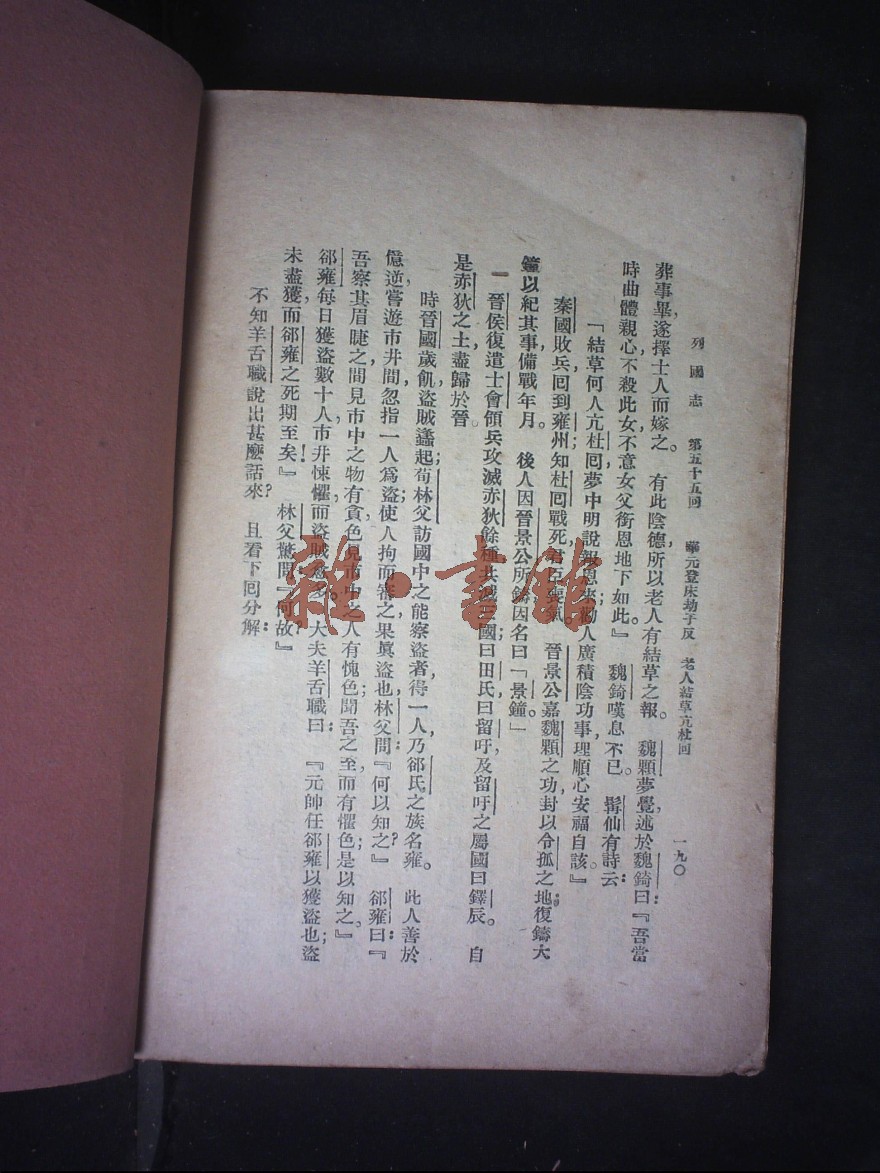 列國志　第五十五回　華元登床劫子反　老人結草亢杜回　一九〇
葬事畢，遂擇士人而嫁之。有此陰德，所以老人有結草之報。魏顆夢覺，述於魏錡曰：『吾當
時曲體親心，不殺此女，不意女父銜恩地下如此。』魏錡嘆息不已。髯仙有詩云：
『結草何人亢杜回？夢中明說報恩來；勸人廣積陰功事，理順心安福自該。』
秦國敗兵，回到雍州，知杜回戰死，君臣喪氣。晉景公嘉魏顆之功，封以令孤之地；復鑄大
鐘以紀其事，備戰年月。後人因晉景公所鑄，因名曰「景鐘。」
晉侯復遣士會領兵攻滅赤狄餘種，共滅三國：曰田氏，曰留吁，及留吁之屬國曰鐸辰。自
是赤狄之土，盡歸於晉。
時晉國歲飢，盜賊蠭起，荀林父訪國中之能察盜者，得一人，乃郤氏之族，名雍。此人善於
億逆，嘗遊市井間，忽指一人爲盜，使人拘而審之，果眞盜也。林父問：『何以知之？』郤雍曰：『
吾察其眉睫之間，見市中之物有貪色，見市中之人有愧色；聞吾之至，而有懼色；是以知之。』
郤雍每日獲盜數十人，市井悚懼，而盜賊愈多。大夫羊舌職曰：『元帥任郤雍以獲盜也；盜
未盡獲，而郤雍之死期至矣！』林父驚問：『何故？』
不知羊舌職說出甚麽話來？且看下回分解：
雜·書館